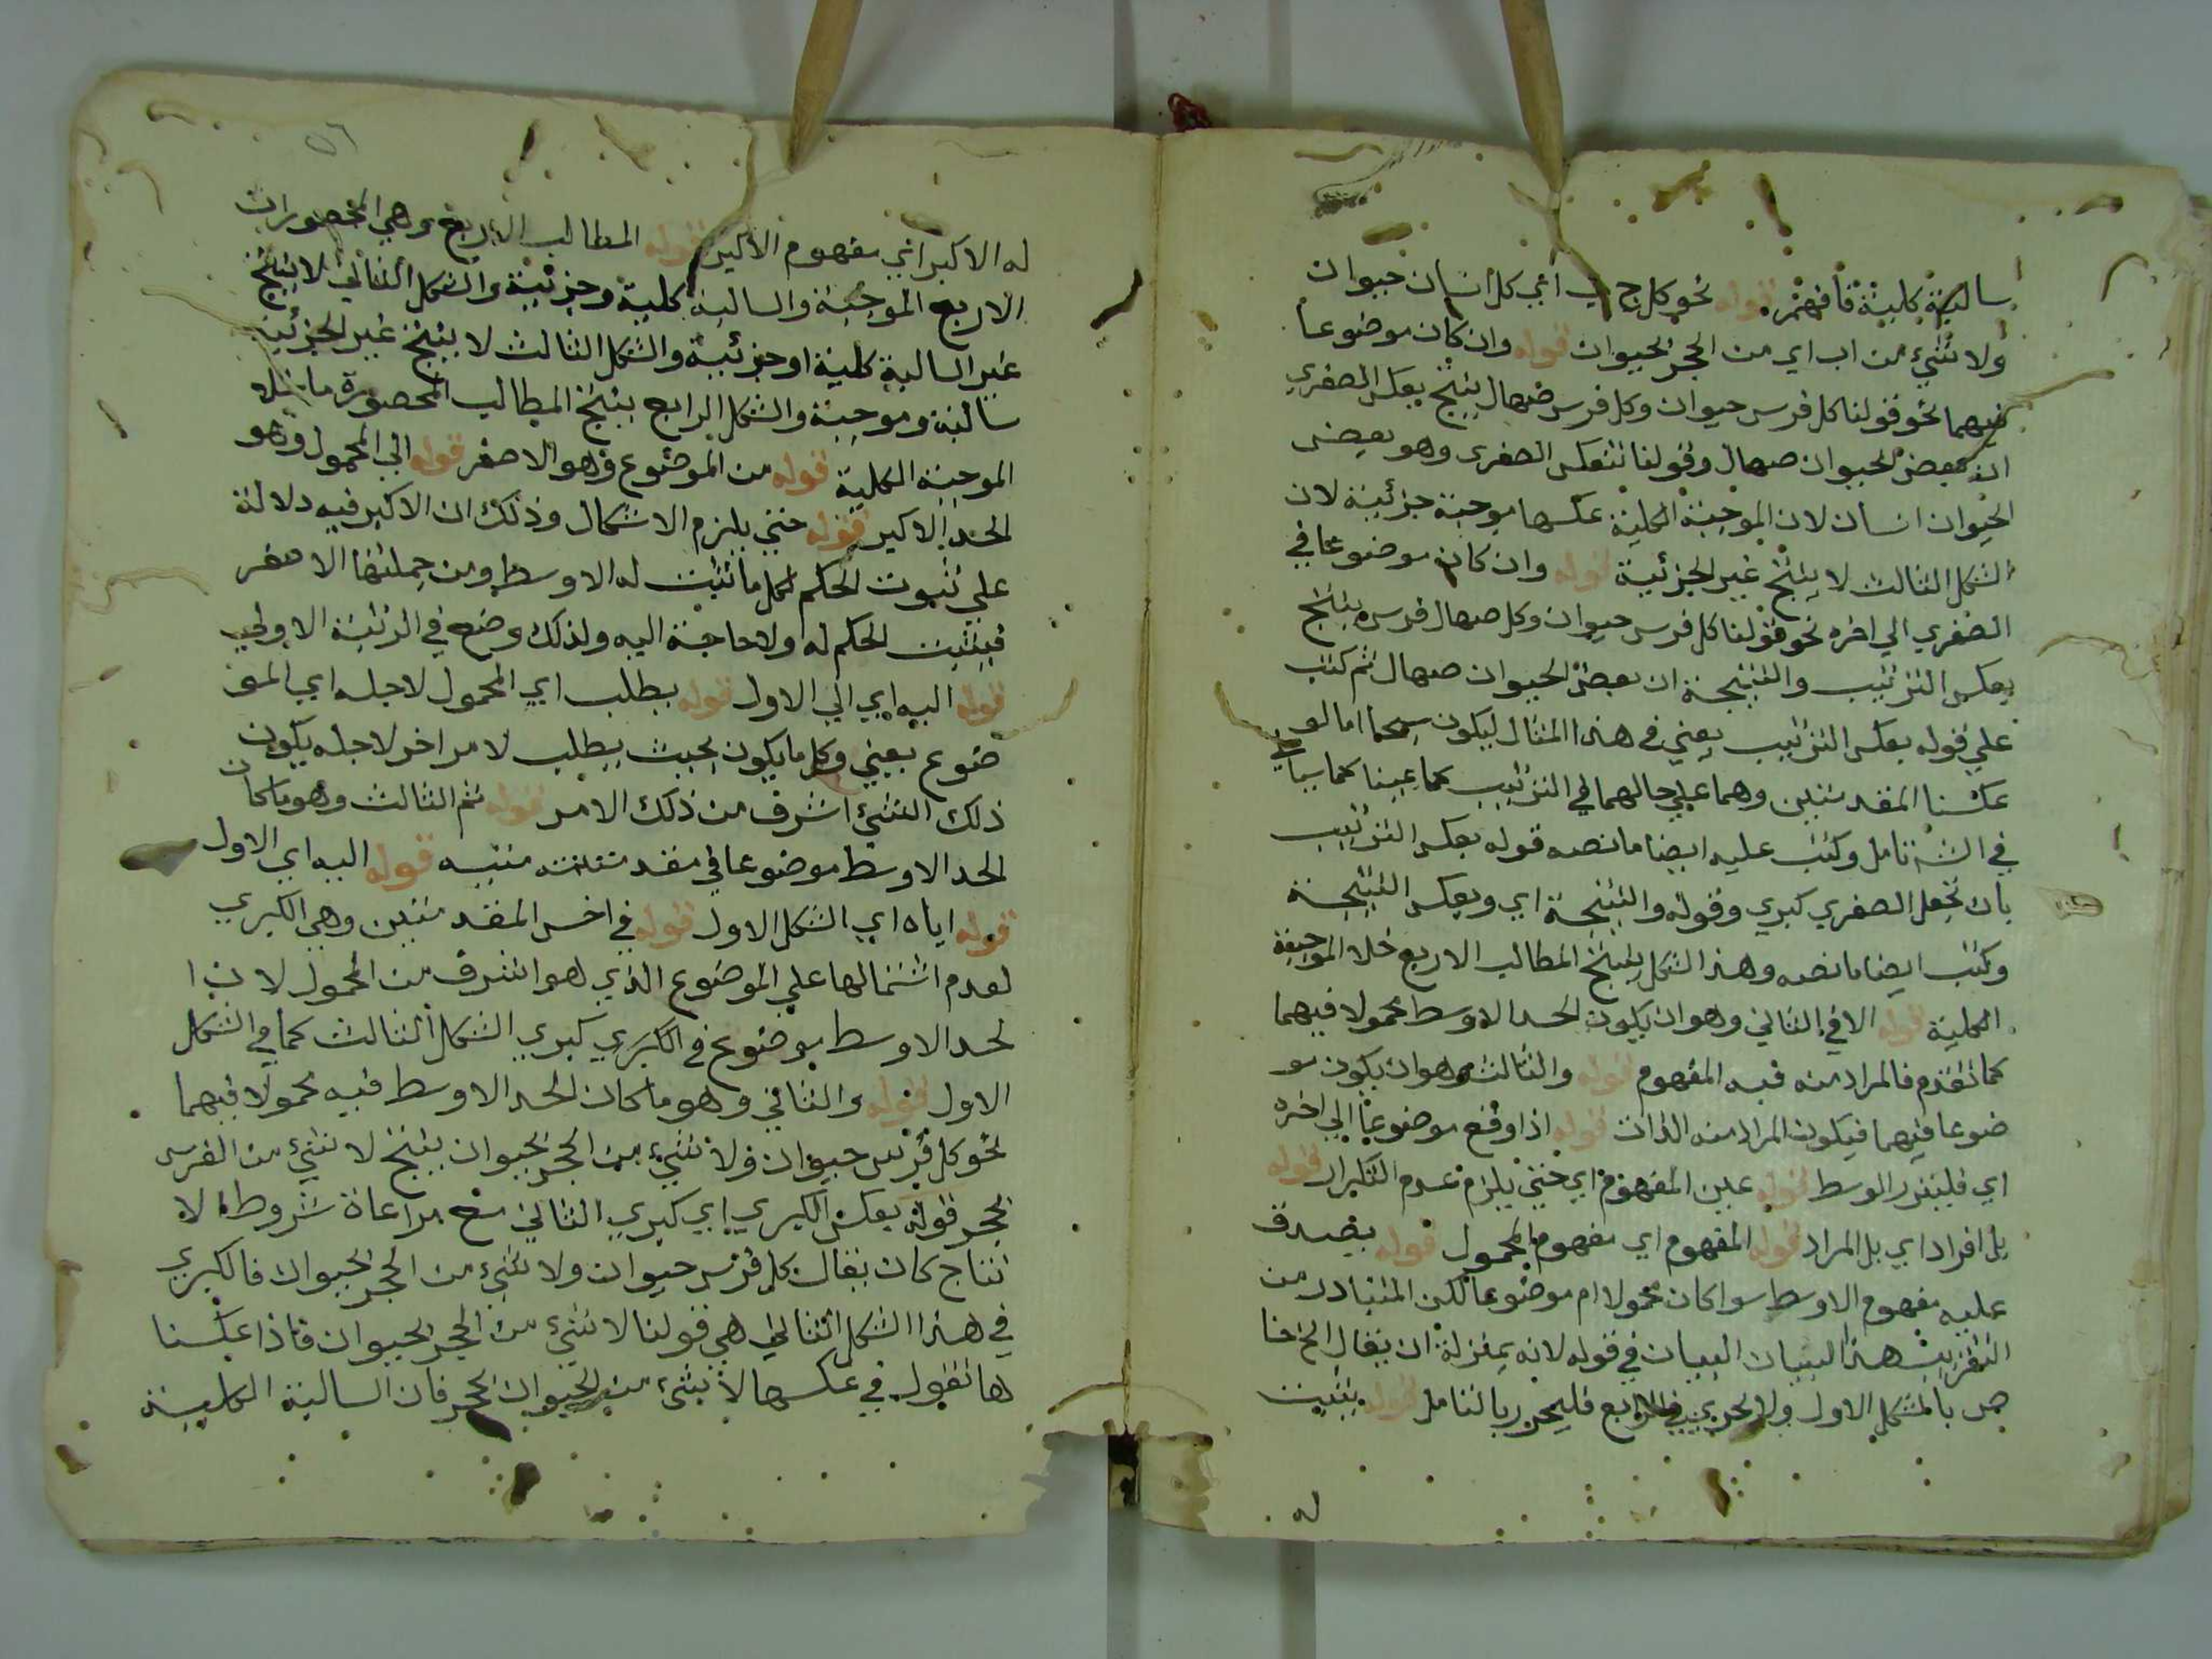 سالبة كلية فافهم. قوله نحو كل ج ب اي كل انسان حيوان
ولا شئ من اب اي من الحجر بحيوان قوله وان كان موضوعا
فيهما نحو قولنا كل فرس حيوان وكل فرس صهال ينتج بعكس الصغري
ان بعض الحيوان صهال وقولنا بتعكس الصغرى وهو بعض
الحيوان انسان لان الموجبة الكلية عكسها موجبة جزئية لان
الشكل الثالث لا ينتج غير الجزئية قوله وان كان موضوعا في
الصغري الي اخره نحو قولنا كل فرس حيوان وكل صهال فرس ينتج
بعكس الترتيب والنتيجة ان بعض الحيوان صهال ثم كتب
علي قوله بعكس الترتيب يعني في هذا المثال ليكون اما لو
عكسنا المقدمتين وهما علي حالهما في الترتيب كما عينا كما سياتي
في الش تامل وكتب عليه ايضا ما نصه قوله بعكس الترتيب
بان تجعل الصغري كبري وقوله والنتيجة اي وبعكس النتيجة
وكتب ايضا ما نصه وهذا الشكل ينتج المطالب الاربع خلا الموجبة
الكلية قوله الا في الثاني وهو ان يكون الحد الاوسط محمولا فيهما
كما تقدم فالمراد منه فيه المفهوم قوله والثالث وهو ان يكون مو
ضوعا فيهما فيكون المراد منه الذات قوله اذا وقع موضوعا الي اخره
اي فليتزر الوسط قوله عين المفهوم اي حتي يلزم عدم التكرار قوله
بل افراد اي بل المراد قوله المفهوم اي مفهوم المحمول قوله يصدق
عليه مفهوم الاوسط سوا كان محمولا ام موضوعا لكن المتبادر من
التقريب هذا البيان البيان في قوله لانه بمنزلة ان يقال الخ خا
ص بالشكل الاول ولا يجري في الرابع فليحرر بالتامل قوله يثبت
له
٥٦
له الاكبر اي مفهوم الاكبر قوله المطالب الاربع وهي المحصورات
الاربع الموجبة والسالبة كلية وجزئية والشكل الثاني لا ينتج
غير السالبة كلية او جزئية والشكل الثالث لا ينتج غير الجزئية
سالبة وموجبة والشكل الرابع ينتج المطالب المحصورة ما خلا
الموجبة الكلية قوله من الموضوع وهو الاصغر قوله الي المحمول وهو
الحد الاكبر قوله حتي يلزم الاشكال وذلك ان الاكبر فيه دلالة
علي ثبوت الحكم لكل ما ثبت له الاوسط ومن جملتها الاصغر
فيثبت الحكم له ولا حاجة اليه ولذلك وضع في الرتبة الاولي
قوله اليه اي الي الاول قوله يطلب اي المحمول لاجله اي المو
ضوع يعني وكل ما يكون بحيث يطلب لامر اخر لاجله يكون
ذلك الشئ اشرف من ذلك الامر قوله ثم الثالث وهو ما كان
الحد الاوسط موضوعا في مقدمتيه قوله اليه اي الاول
قوله اياه اي الشكل الاول قوله في اخس المقدمتين وهي الكبري
لعدم اشتمالها علي الموضوع الذي هو اشرف من المحمول لان ا
لحد الاوسط موضوع في الكبري كبري الشكل الثالث كما في الشكل
الاول قوله والثاني وهو ما كان الحد الاوسط فيه محمولا فيهما
نحو كل فرس حيوان ولا شئ من الحجر بحيوان ينتج لا شئ من الفرس
بحجر قوله بعكس الكبري اي كبري الثاني مع مراعاة شروط الا
نتاج كان يقال كل فرس حيوان ولا شئ من الحجر بحيوان فالكبري
في هذا الشكل الثاني هي قولنا لا شئ من الحجر بحيوان فاذا عكسنا
ها نقول في عكسها لا شئ من الحيوان بحجر فان السالبة الكلية